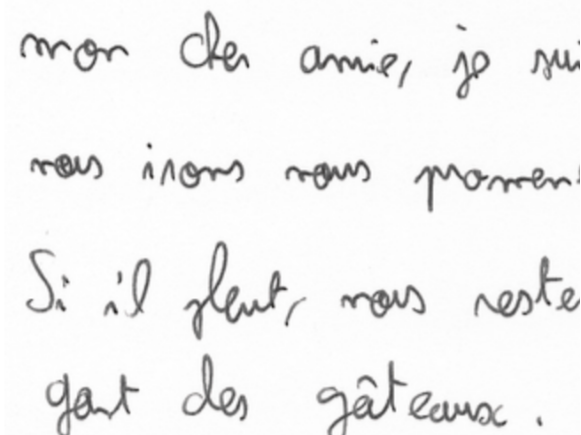 mon cher amie, je sui
nous irons nous promen
Si il pleut, nous reste
gant des gâteaux.